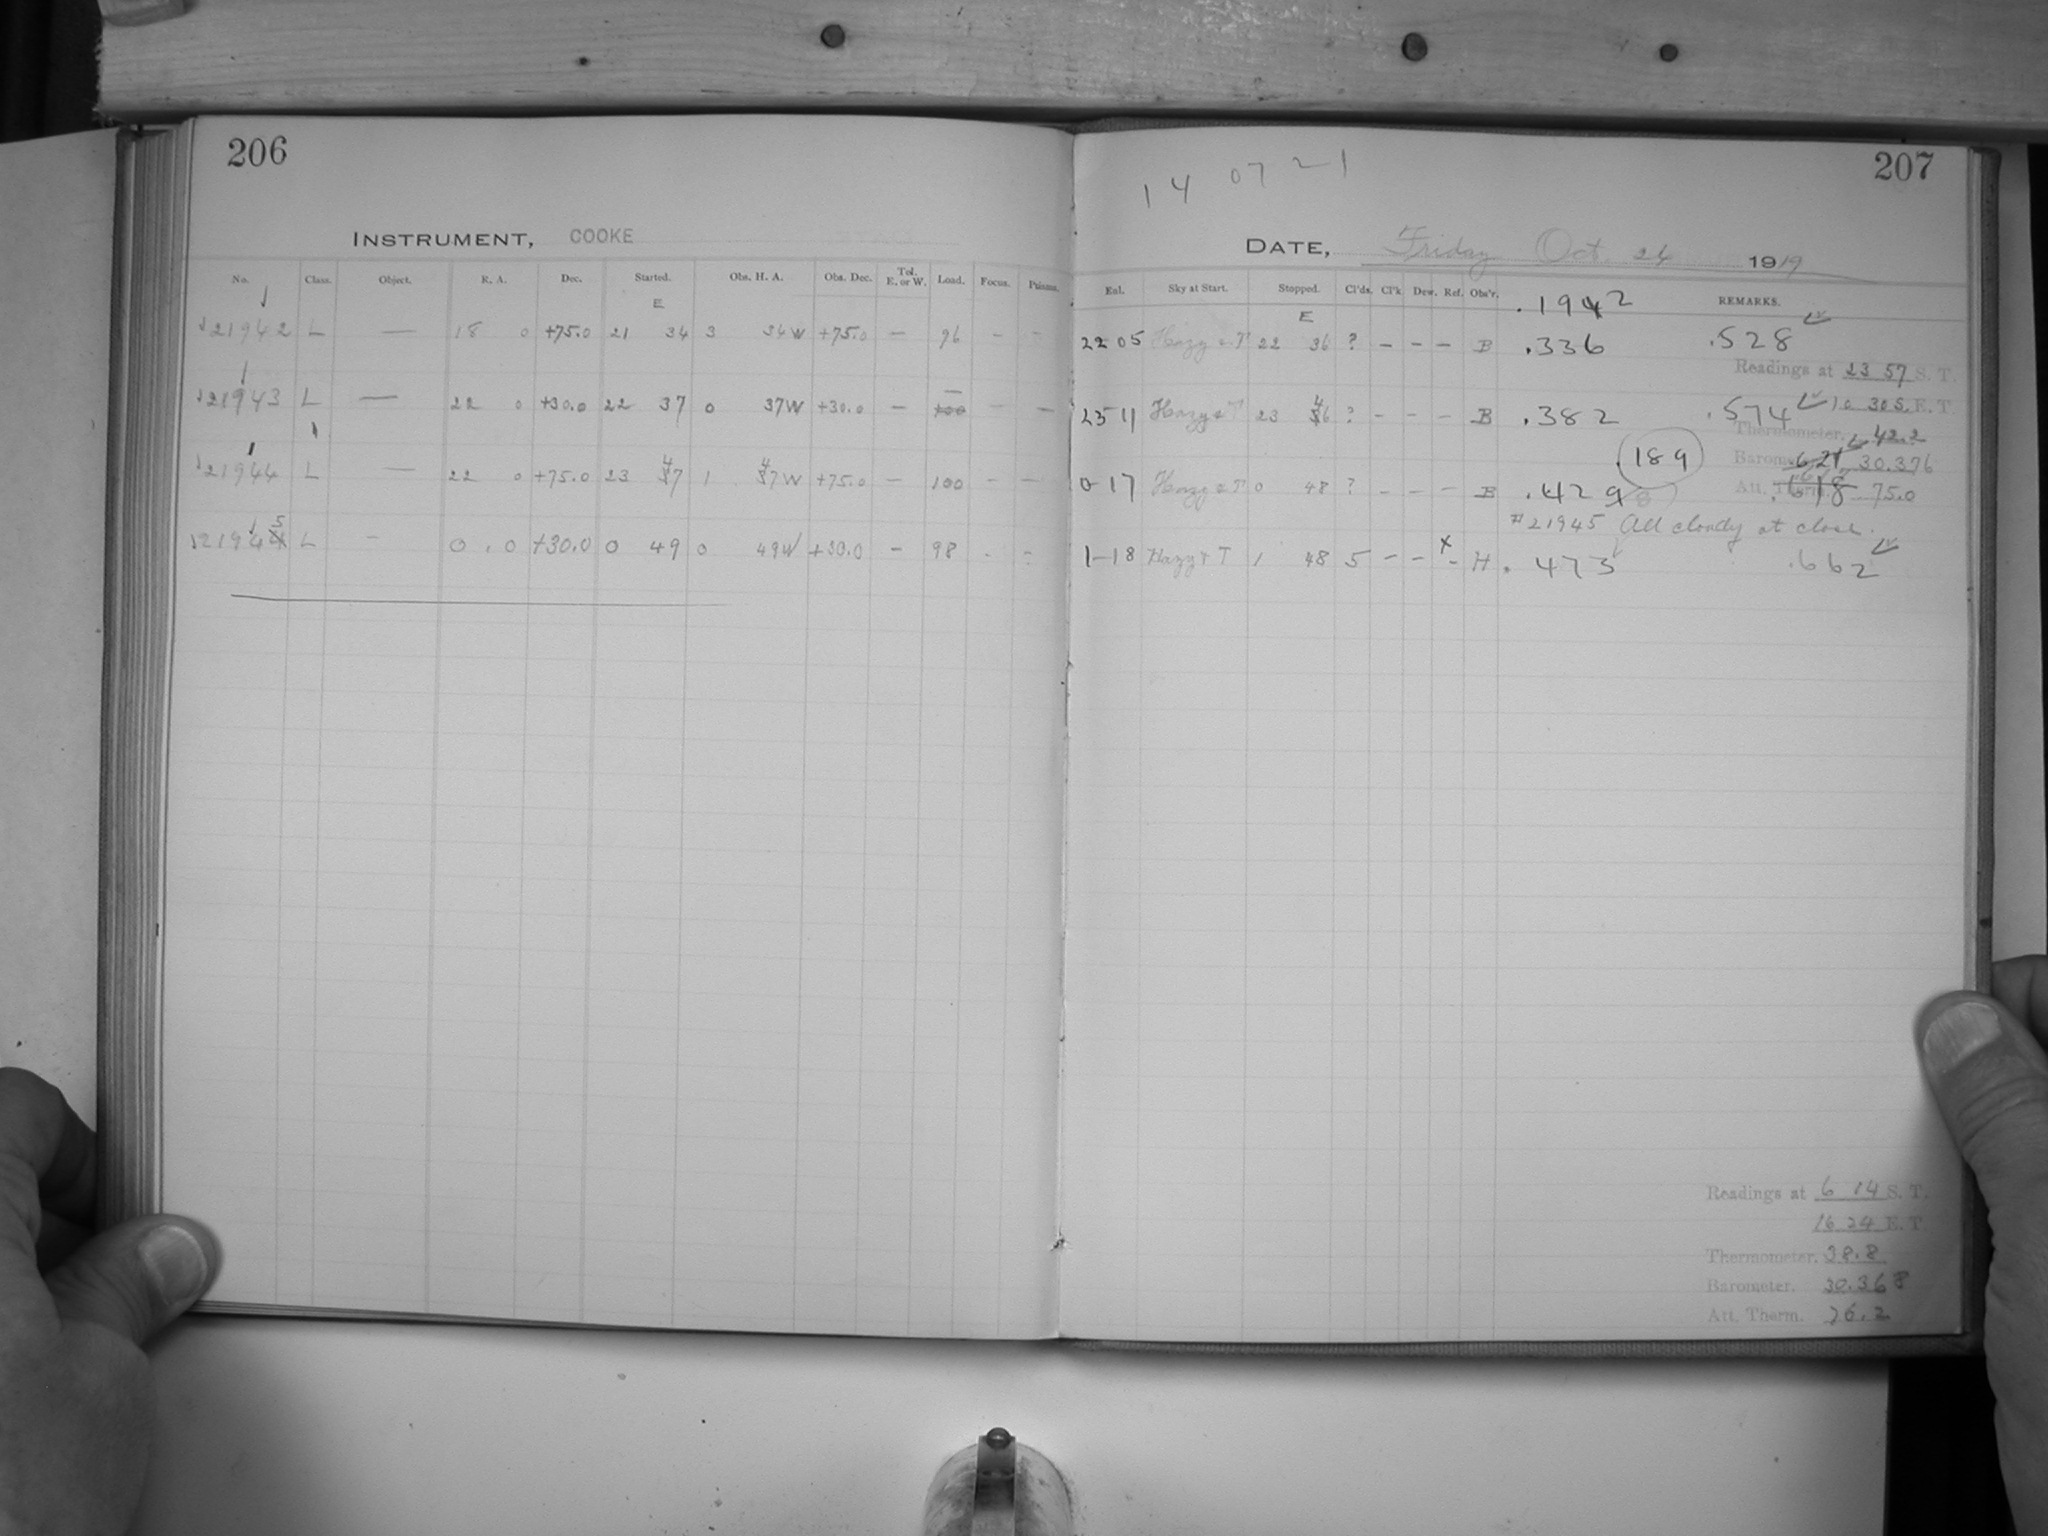 206
INSTRUMENT, COOKE
No. Class. Object. R. A. Dec. Started. Obs. H. A. Obs. Dec. Tel. E. or W. Load. Focus. Prisms.
E
21942 L — 18 0 +75.0 21 34 3 34W +75.0 — 96 - -
21943 L — 22 0 +30.0 22 37 0 37W +30.0 — 100 - -
21944 L — 22 0 +75.0 23 47 1 47W +75.0 — 100 - -
21945 L - 0 . 0 +30.0 0 49 0 49W +30.0 — 98 - -
207
14 07 21
DATE, Friday Oct. 24 1919
Enl. Sky at Start. Stopped. Cl'ds. Cl'k. Dew. Ref. Obs'r. .1942 REMARKS.
E
22 05 Hazy & T 22 36 ? - - - B .336 .528
Readings at 23 57 S. T.
23 11 Hazy & T 23 46 ? - - - B .382 .574 10 305 E. T
Thermometer. 42.2
.189
Barom .621 30.376
0-17 Hazy & T 0 48 ? - - - B .429 8 Att. Therm. .618 75.0
#21945 All cloudy at close.
1-18 Hazy & T 1 48 5 - - x - H . 473 .662
Readings at 6 14 S. T.
16 24 E. T
Thermometer. 38.8
Barometer. 30.368
Att. Therm. 76.2